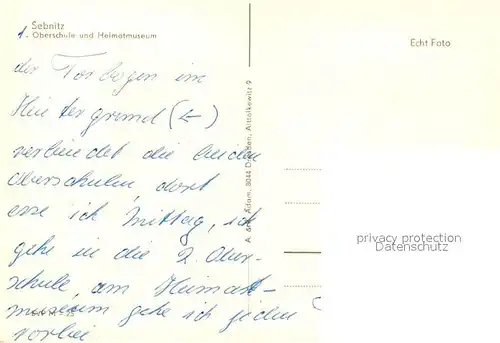 Sebnitz
1. Oberschule und Heimatmuseum
Echt Foto
der Torbogen im
Hintergrund (←)
verbindet die beiden
Oberschulen, dort
esse ich Mittag, ich
gehe in die 2. Ober-
schule, am Heimat-
museum gehe ich jeden
vorbei
A. & R. Adam, 8044 Dresden, AltTolkewitz 9
privacy protection
Datenschutz